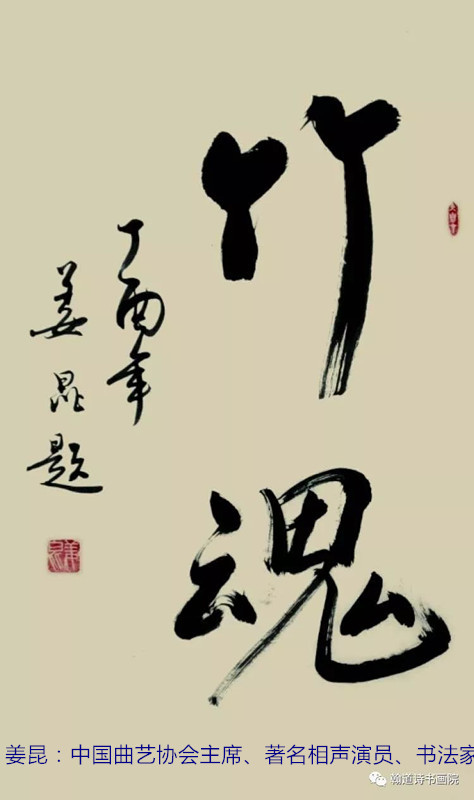 竹魂
丁酉年
姜昆题
姜昆：中国曲艺协会主席、著名相声演员、书法家
瀚道诗书画院